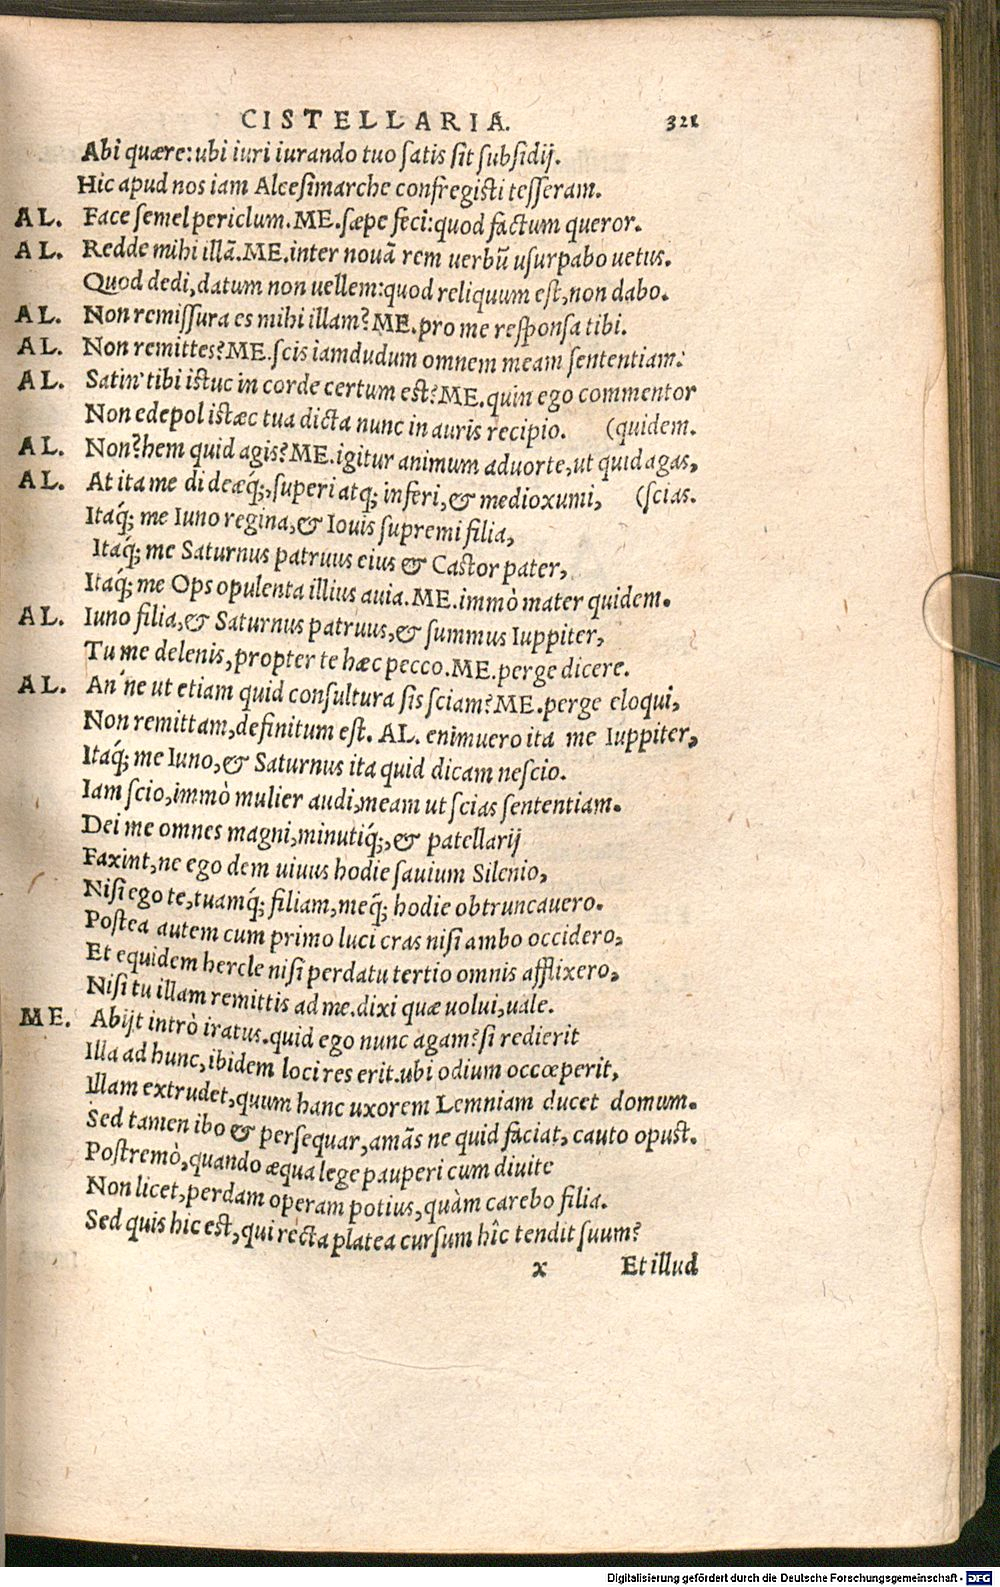 CISTELLARIA. 321
Abi quære: ubi iuri iurando tuo satis sit subsidij.
Hic apud nos iam Alcesimarche confregisti tesseram.
AL. Face semel periclum. ME. sæpe feci: quod factum queror.
AL. Redde mihi illã. ME. inter nouã rem uerbũ usurpabo uetus.
Quod dedi, datum non uellem: quod reliquum est, non dabo.
AL. Non remissura es mihi illam? ME. pro me responsa tibi.
AL. Non remittes? ME. scis iamdudum omnem meam sententiam:
AL. Satin' tibi istuc in corde certum est? ME. quin ego commentor
Non edepol istæc tua dicta nunc in auris recipio. (quidem.
AL. Non? hem quid agis? ME. igitur animum aduorte, ut quid agas,
AL. At ita me di deæq;, superi atq; inferi, & medioxumi, (scias.
Itaq́; me Iuno regina, & Iouis supremi filia,
Itaq́; me Saturnus patruus eius & Castor pater,
Itaq́; me Ops opulenta illius auia. ME. immò mater quidem.
AL. Iuno filia, & Saturnus patruus, & summus Iuppiter,
Tu me delenis, propter te hæc pecco. ME. perge dicere.
AL. An'ne ut etiam quid consultura sis sciam? ME. perge eloqui,
Non remittam, definitum est. AL. enimuero ita me Iuppiter,
Itaq́; me Iuno, & Saturnus ita quid dicam nescio.
Iam scio, immò mulier audi, meam ut scias sententiam.
Dei me omnes magni, minutiq́;, & patellarij
Faxint, ne ego dem uiuus hodie sauium Silenio,
Nisi ego te, tuamq́; filiam, meq́; hodie obtruncauero.
Postea autem cum primo luci cras nisi ambo occidero,
Et equidem hercle nisi perdatu tertio omnis afflixero,
Nisi tu illam remittis ad me. dixi quæ uolui, uale.
ME. Abijt intrò iratus. quid ego nunc agam? si redierit
Illa ad hunc, ibidem loci res erit. ubi odium occœperit,
Illam extrudet, quum hanc uxorem Lemniam ducet domum.
Sed tamen ibo & persequar, amãs ne quid faciat, cauto opust.
Postremò, quando æqua lege pauperi cum diuite
Non licet, perdam operam potius, quàm carebo filia.
Sed quis hic est, qui recta platea cursum hîc tendit suum?
x Et illud
Digitalisierung gefördert durch die Deutsche Forschungsgemeinschaft - DFG